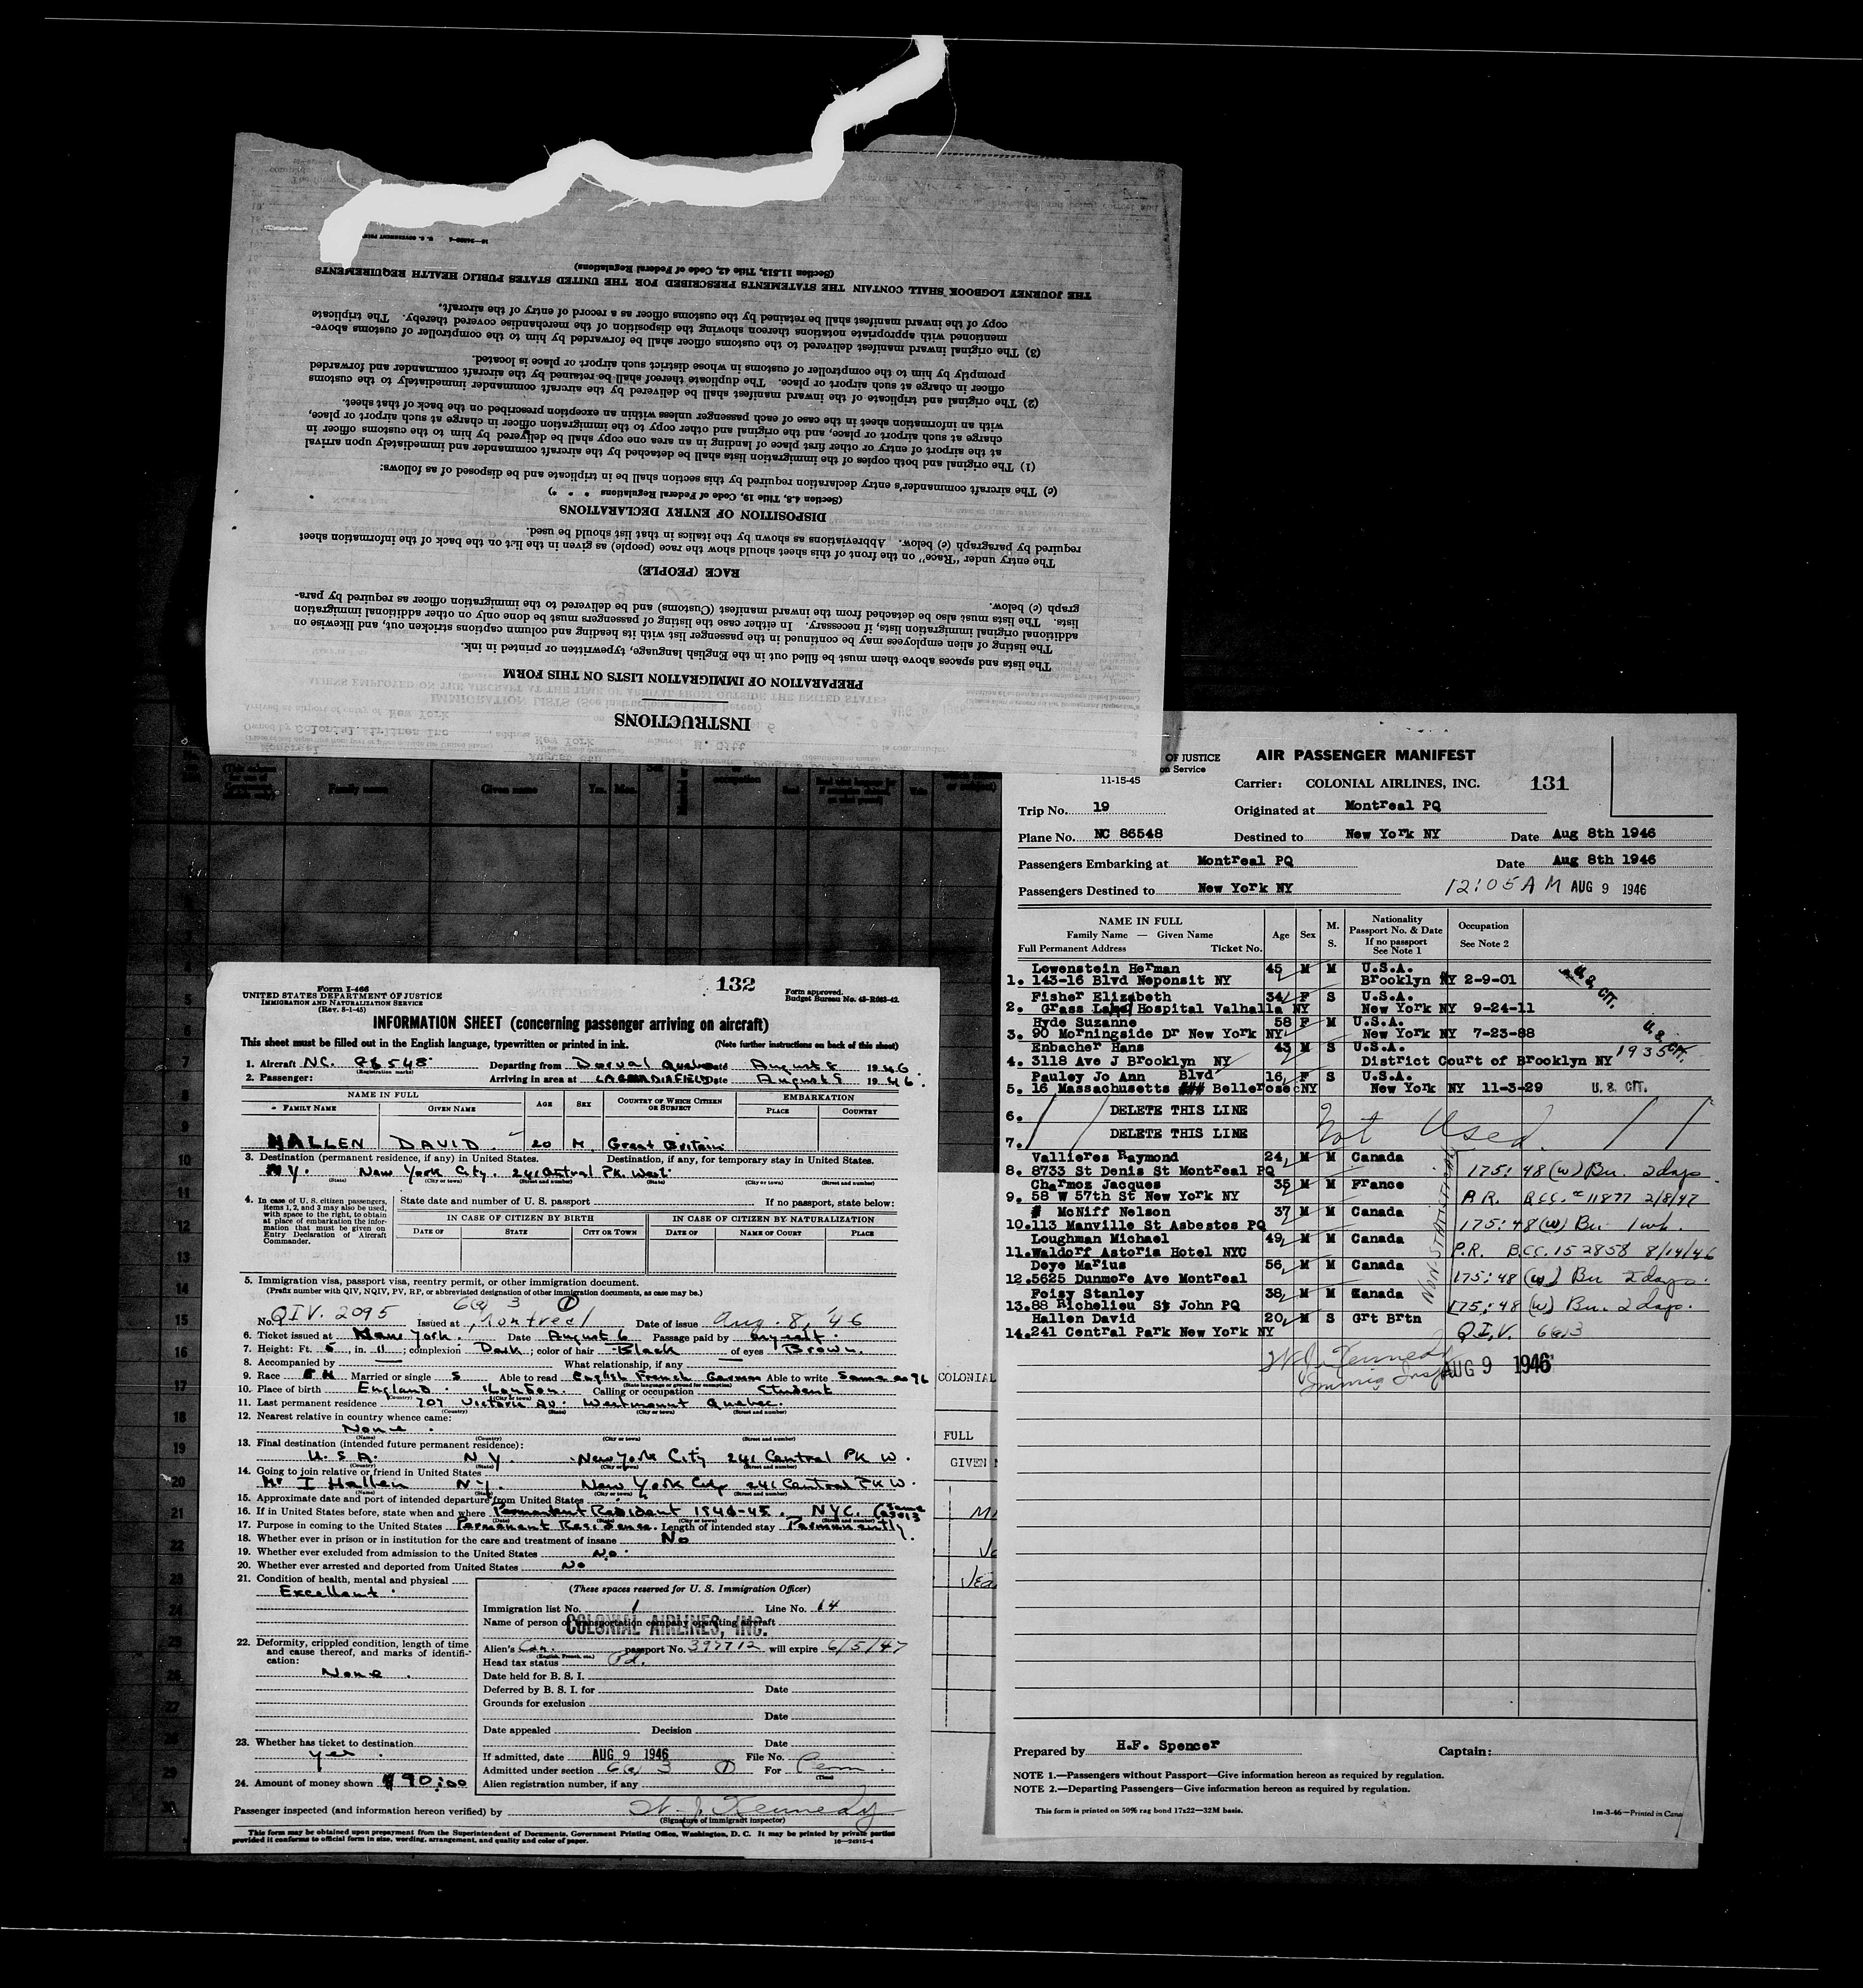 INSTRUCTIONS
PREPARATION OF IMMIGRATION LISTS ON THIS FORM
The lists and spaces above them must be filled out in the English language, typewritten or printed in ink.
The listing of alien employees may be continued in the passenger list with its heading and column captions stricken out, and likewise on
additional original immigration lists, if necessary. In either case the listing of passengers must be done only on other additional immigration
lists. The lists must also be detached from the inward manifest (Customs) and be delivered to the immigration officer as required by para-
graph (c) below.
RACE (PEOPLE)
The entry under "Race" on the front of this sheet should show the race (people) as given in the list on the back of the information sheet
required by paragraph (c) below. Abbreviations as shown by the italics in that list should be used.
DISPOSITION OF ENTRY DECLARATIONS
(Section 4.8, Title 19, Code of Federal Regulations * * *)
(c) The aircraft commander's entry declaration required by this section shall be in triplicate and be disposed of as follows:
(1) The original and both copies of the immigration lists shall be detached by the aircraft commander and immediately upon arrival
at the airport of entry or other first place of landing in an area one copy shall be delivered by him to the customs officer in
charge at such airport or place, and the original and other copy to the immigration officer in charge at such airport or place,
with an information sheet in the case of each passenger unless within an exception prescribed on the back of that sheet.
(2) The original and triplicate of the inward manifest shall be delivered by the aircraft commander immediately to the customs
officer in charge at such airport or place. The duplicate thereof shall be retained by the aircraft commander and forwarded
promptly by him to the comptroller of customs in whose district such airport or place is located.
(3) The original inward manifest delivered to the customs officer shall be forwarded by him to the comptroller of customs above-
mentioned with appropriate notations thereon showing the disposition of the merchandise covered thereby. The triplicate
copy of the inward manifest shall be retained by the customs officer as a record of entry of the aircraft.
THE JOURNEY LOGBOOK SHALL CONTAIN THE STATEMENTS PRESCRIBED FOR THE UNITED STATES PUBLIC HEALTH REQUIREMENTS
(Section 11.513, Title 42, Code of Federal Regulations)
Family name Given name
132
Form I-466
UNITED STATES DEPARTMENT OF JUSTICE
IMMIGRATION AND NATURALIZATION SERVICE
(Rev. 8-1-45)
Form approved.
Budget Bureau No. 43-R083-42.
INFORMATION SHEET (concerning passenger arriving on aircraft)
This sheet must be filled out in the English language, typewritten or printed in ink. (Note further instructions on back of this sheet)
1. Aircraft NC. 86548 Departing from Dorval Quebec date August 8 1946
(Registration marks)
2. Passenger: Arriving in area at Date August 9 1946.
NAME IN FULL AGE SEX COUNTRY OF WHICH CITIZEN OR SUBJECT EMBARKATION
FAMILY NAME GIVEN NAME PLACE COUNTRY
HALLEN DAVID 20 M. Great Britain
3. Destination (permanent residence, if any) in United States. Destination, if any, for temporary stay in United States.
N.Y. New York City. 241 Central Pk. West.
(State) (City or town) (Street and number) (State) (City or town) (Street and number)
4. In case of U. S. citizen passengers, items 1, 2, and 3 may also be used, with space to the right, to obtain at place of embarkation the information that must be given on Entry Declaration of Aircraft Commander.
State date and number of U. S. passport If no passport, state below:
IN CASE OF CITIZEN BY BIRTH IN CASE OF CITIZEN BY NATURALIZATION
DATE OF STATE CITY OR TOWN DATE OF NAME OF COURT PLACE
5. Immigration visa, passport visa, reentry permit, or other immigration document.
(Prefix number with QIV, NQIV, PV, RP, or abbreviated designation of other immigration documents, as case may be.)
6(a) 3 1
No. QIV. 2095 Issued at Montreal Date of issue Aug. 8, '46
6. Ticket issued at New York. Date August 6 Passage paid by myself.
7. Height: Ft. 5, in. 11; complexion Dark; color of hair Black of eyes Brown.
8. Accompanied by — What relationship, if any —
9. Race Married or single S Able to read English French German Able to write Same as 9
(State language or ground for exemption)
10. Place of birth England. London. Calling or occupation Student
(Country) (City or town)
11. Last permanent residence 707 Victoria Av. Westmount Quebec.
(Country) (State) (City or town) (Street and number)
12. Nearest relative in country whence came:
None.
(Name) (Country) (City or town) (Street and number)
13. Final destination (intended future permanent residence):
U.S.A. N.Y. New York City 241 Central Pk W.
(Country) (State) (City or town) (Street and number)
14. Going to join relative or friend in United States
Mr I Hallen N.Y. New York City 241 Central Pk W.
(Name) (State) (City or town) (Street and number)
15. Approximate date and port of intended departure from United States
16. If in United States before, state when and where Permanent Resident 1940-45. NYC.
(Date) (State) (City or town) (Street and number)
17. Purpose in coming to the United States Permanent Residence. Length of intended stay Permanently.
18. Whether ever in prison or in institution for the care and treatment of insane No
19. Whether ever excluded from admission to the United States No.
20. Whether ever arrested and deported from United States No
21. Condition of health, mental and physical
Excellent.
22. Deformity, crippled condition, length of time and cause thereof, and marks of identification:
None.
23. Whether has ticket to destination
Yes.
24. Amount of money shown $90.00
(These spaces reserved for U. S. Immigration Officer)
Immigration list No. 1 Line No. 14
Name of person or transportation company operating aircraft
COLONIAL AIRLINES, INC.
Alien's Can. passport No. 397712 will expire 6/5/47
(English, French, etc.)
Head tax status Pd.
Date held for B. S. I.
Deferred by B. S. I. for Date
Grounds for exclusion
Date
Date appealed Decision
Date
If admitted, date AUG 9 1946 File No.
Admitted under section 6(a) 3 1 For Perm.
(Time)
Alien registration number, if any
Passenger inspected (and information hereon verified) by W. J. Kennedy
(Signature of immigrant inspector)
This form may be obtained upon prepayment from the Superintendent of Documents, Government Printing Office, Washington, D. C. It may be printed by private parties
provided it conforms to official form in size, wording, arrangement, and quality and color of paper. 16—24915-4
COLONIAL
FULL
GIVEN
OF JUSTICE
on Service
11-15-45
AIR PASSENGER MANIFEST
Carrier: COLONIAL AIRLINES, INC. 131
Trip No. 19 Originated at Montreal PQ
Plane No. NC 86548 Destined to New York NY Date Aug 8th 1946
Passengers Embarking at Montreal PQ Date Aug 8th 1946
Passengers Destined to New York NY 12:05 AM AUG 9 1946
NAME IN FULL
Family Name — Given Name
Full Permanent Address Ticket No.
Age Sex M. S.
Nationality
Passport No. & Date
If no passport
See Note 1
Occupation
See Note 2
Lowenstein Herman 45 M M U.S.A.
1. 143-16 Blvd Neponsit NY Brooklyn NY 2-9-01 U.S. CIT.
Fisher Elizabeth 34 F S U.S.A.
2. Grass Land Hospital Valhalla NY New York NY 9-24-11
Hyde Suzanne 58 F M U.S.A.
3. 90 Morningside Dr New York NY New York NY 7-23-88 U.S. CIT.
Enbacher Hans 43 M S U.S.A.
4. 3118 Ave J Brooklyn NY District Court of Brooklyn NY 1935
Pauley Jo Ann Blvd 16 F S U.S.A.
5. 16 Massachusetts ### Bellerose NY New York NY 11-3-29 U.S. CIT.
6. DELETE THIS LINE
7. DELETE THIS LINE Not Used.
Vallieres Raymond 24 M M Canada
8. 8733 St Denis St Montreal PQ 175:48 (W) Bu. 2 days.
Charmoz Jacques 35 M M France
9. 58 W 57th St New York NY P.R. BCC. #11877 2/8/47
# McNiff Nelson 37 M M Canada
10. 113 Manville St Asbestos PQ 175:48 (W) Bu. 1 wk.
Loughman Michael 49 M M Canada
11. Waldorf Astoria Hotel NYC P.R. BCC. 152858 8/14/46
Doye Marius 56 M M Canada
12. 5625 Dunmore Ave Montreal 175:48 (W) Bu 2 days.
Foisy Stanley 38 M M Canada
13. 88 Richelieu St John PQ 175:48 (W) Bu. 2 days.
Hallen David 20 M S Grt Brtn
14. 241 Central Park New York NY Q.I.V. 6(a)3
NON-STATISTICAL
W. J. Kennedy
Immig Insp AUG 9 1946
Prepared by H.F. Spencer Captain:
NOTE 1.—Passengers without Passport—Give information hereon as required by regulation.
NOTE 2.—Departing Passengers—Give information hereon as required by regulation.
This form is printed on 50% rag bond 17x22—32M basis. 1m-3-46—Printed in Cana